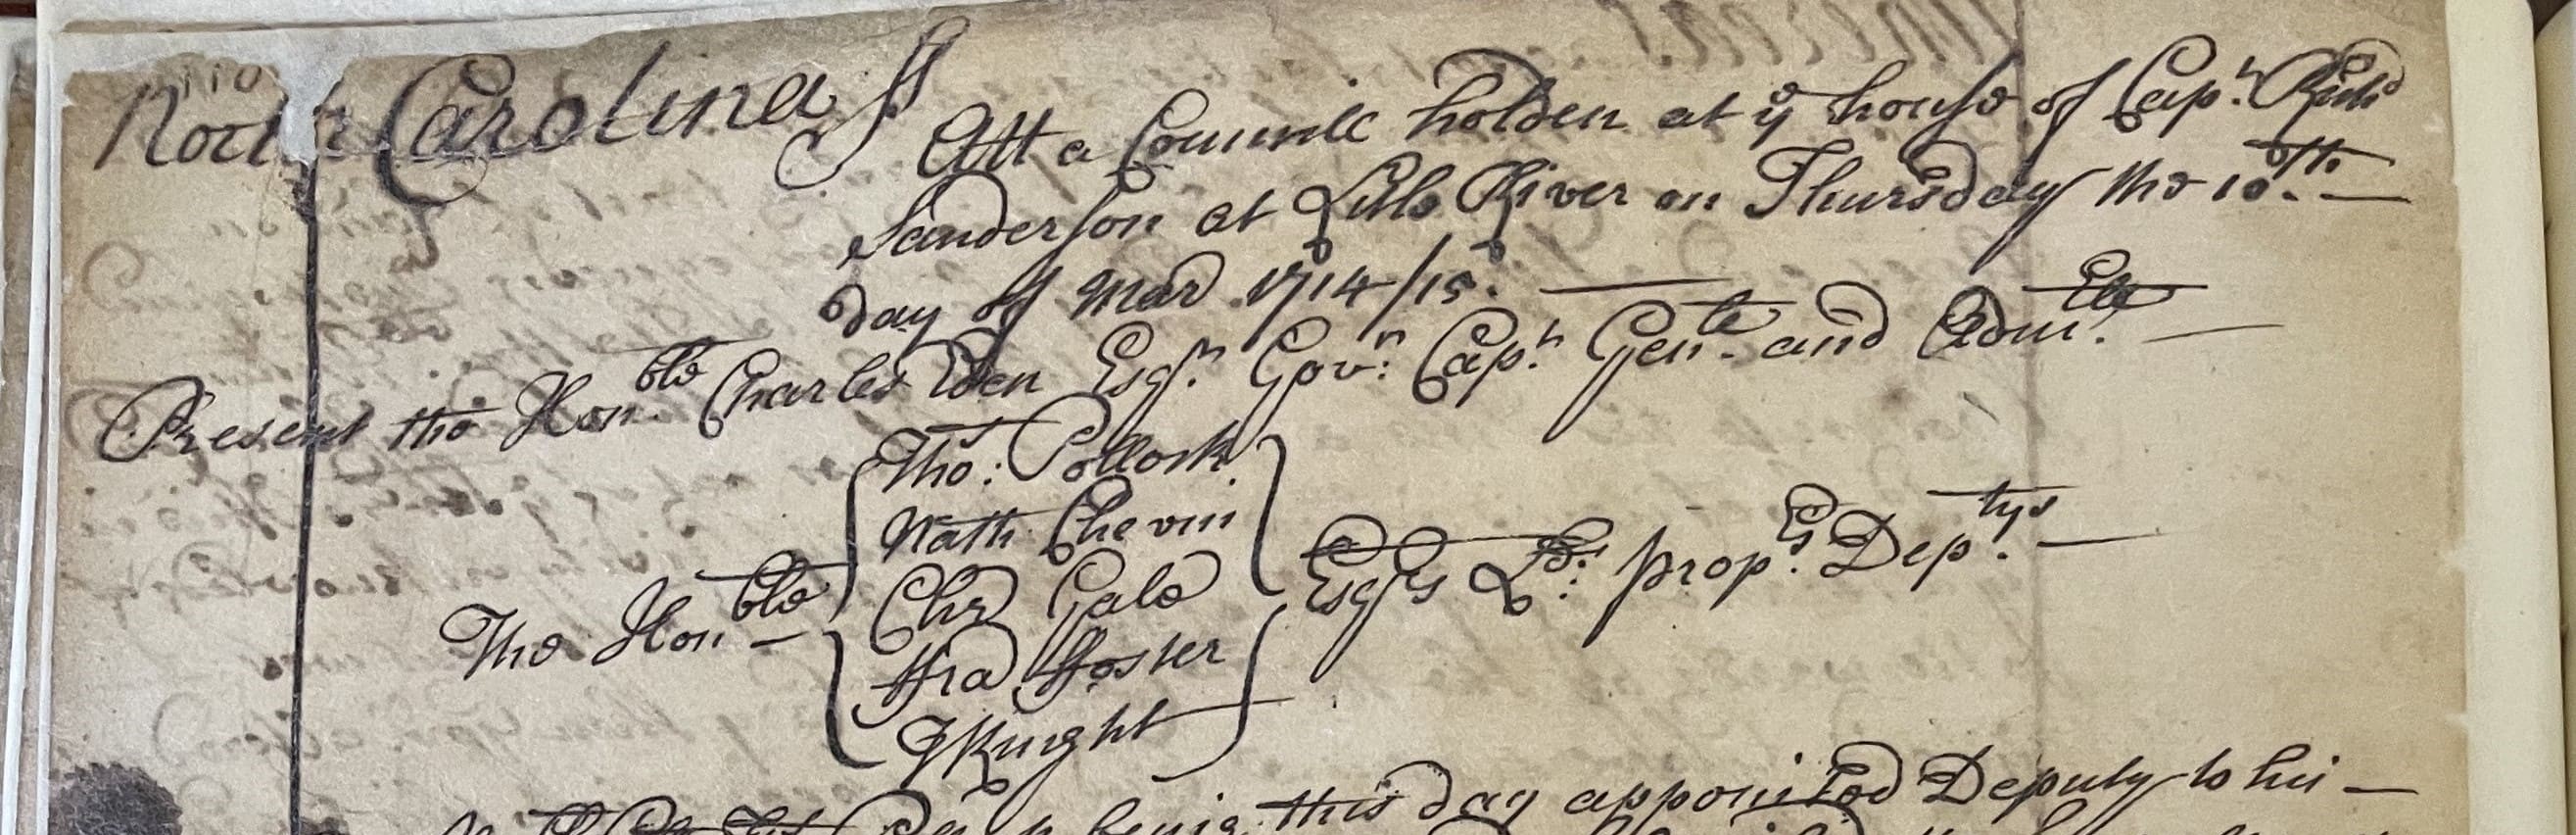 North Carolina ss
Att a Councill holden at ye house of Capt. Richd
Sanderson at Little River on Thursday the 10th.
day of Mar 1714/15.
Present the Honble Charles Eden Esqr. Govr. Capt. Genle. and Admll.
Tho: Pollock
Nath Chevin
The Honble Chr Gale Esqrs Lds. proprs Deptys.
ffra ffoster
TKnight
being this day appointed Deputy to his